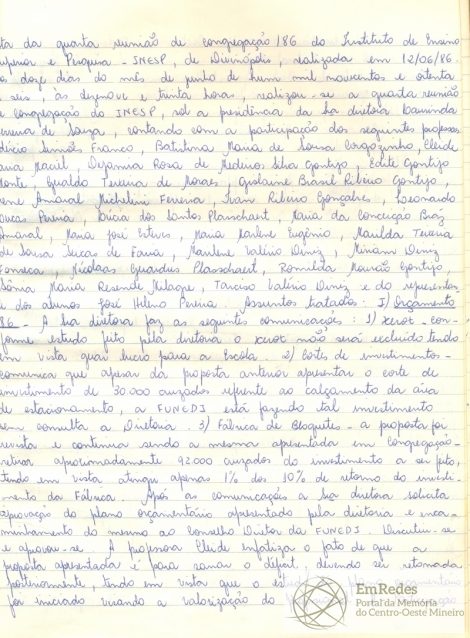 ta da quarta reunião de congregação/86 do Instituto de Ensino
uperior e Pesquisa - INESP, de Divinópolis, realizada em 12/06/86.
s doze dias do mês de junho de hum mil novecentos e oitenta
seis, às dezenove e trinta horas, realizou-se a quarta reunião
e congregação do INESP, sob a presidência da Sra diretora
erreira de Souza, contando com a participação dos seguintes professores
Simões Franco, Batistina Maria de Sousa Corgozinho, Cleide
ana Maciel, Dejamia Rosa de Medeiros Silva Gontijo, Edite Gontijo
onte, Geraldo Tereira de Moraes, Gislaine Brasil Ribeiro Gontijo,
rene Amaral Michelini Ferreira, Ivan Ribeiro Gonçalves, Leonardo
Lucas Pereira, Lúcia dos Santos Plasschaert, Maria da Conceição Braz
Amaral, Maria José Esteves, Maria Marlene Eugênio, Marilda Tereza
de Sousa Lucas de Faria, Marlene Valério Diniz, Miriam Diniz
Fonseca, Nicolaas Guardus Plasschaert, Romilda Mourão Gontijo,
Sônia Maria Resende Milagre, Tarciso Valério Diniz e do represen
e dos alunos José Heleno Pereira. Assuntos tratados: I) Orçamento
86 - A Sra diretora faz as seguintes comunicações: 1) Xerox - con-
forme estudo feito pela diretora o xerox não será excluído tendo
em vista gerar lucro para a Escola. 2) Cortes de investimentos -
comunica que apesar da proposta anterior apresentar o corte de
investimento de 30.000 cruzados referente ao calçamento da área
de estacionamento, a FUNEDI está fazendo tal investimento
sem consulta à Diretoria. 3) Fábrica de Bloquetes - a proposta foi
revista e continua sendo a mesma apresentada em Congregação -
retirar aproximadamente 92.000 cruzados do investimento a ser feito,
tendo em vista atingir apenas 1% dos 10% de retorno do investi-
mento da Fábrica. Após as comunicações a Sra diretora solicita
aprovação do plano orçamentário apresentado pela diretoria e enca-
minhamento do mesmo ao Conselho Diretor da FUNEDI. Discutiu-se
e aprovou-se. A professora Cleide enfatiza o fato de que a
proposta apresentada é para sanar o déficit, devendo ser retomada
posteriormente, tendo em vista que o
foi iniciado visando a valorização do
EmRedes
Portal da Memória
do Centro-Oeste Mineiro